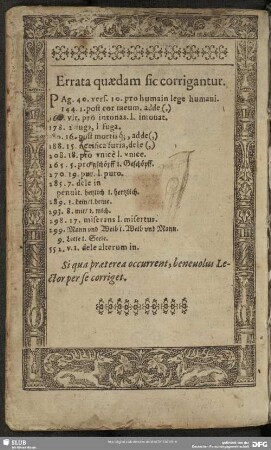 Errata quædam sic corrigantur.
PAg. 40. vers. 10. pro humain lege humani.
144 1. post cor meum, adde (,)
vlt. pro intonas. l. intonat.
178. 2 luga, l fuga.
16. post mortis adde (,)
188. 15. furia, dele (,)
208. 18. pro vnicè l. vnice.
265. 5. l. Geschöpff.
270. 19. pur. l. puro.
285. 7. dele in
penult. hertzlich.
289. 1. deines.
293. 8. mich.
298. 17. miserans l. misertus.
299. Mann vnd Weib l. Weib vnd Mann.
9. l. Seele.
552. v. 1. dele alterum in.
Si qua præterea occurrent, beneuolus Le-
ctor per se corriget.
SLUB
DFG